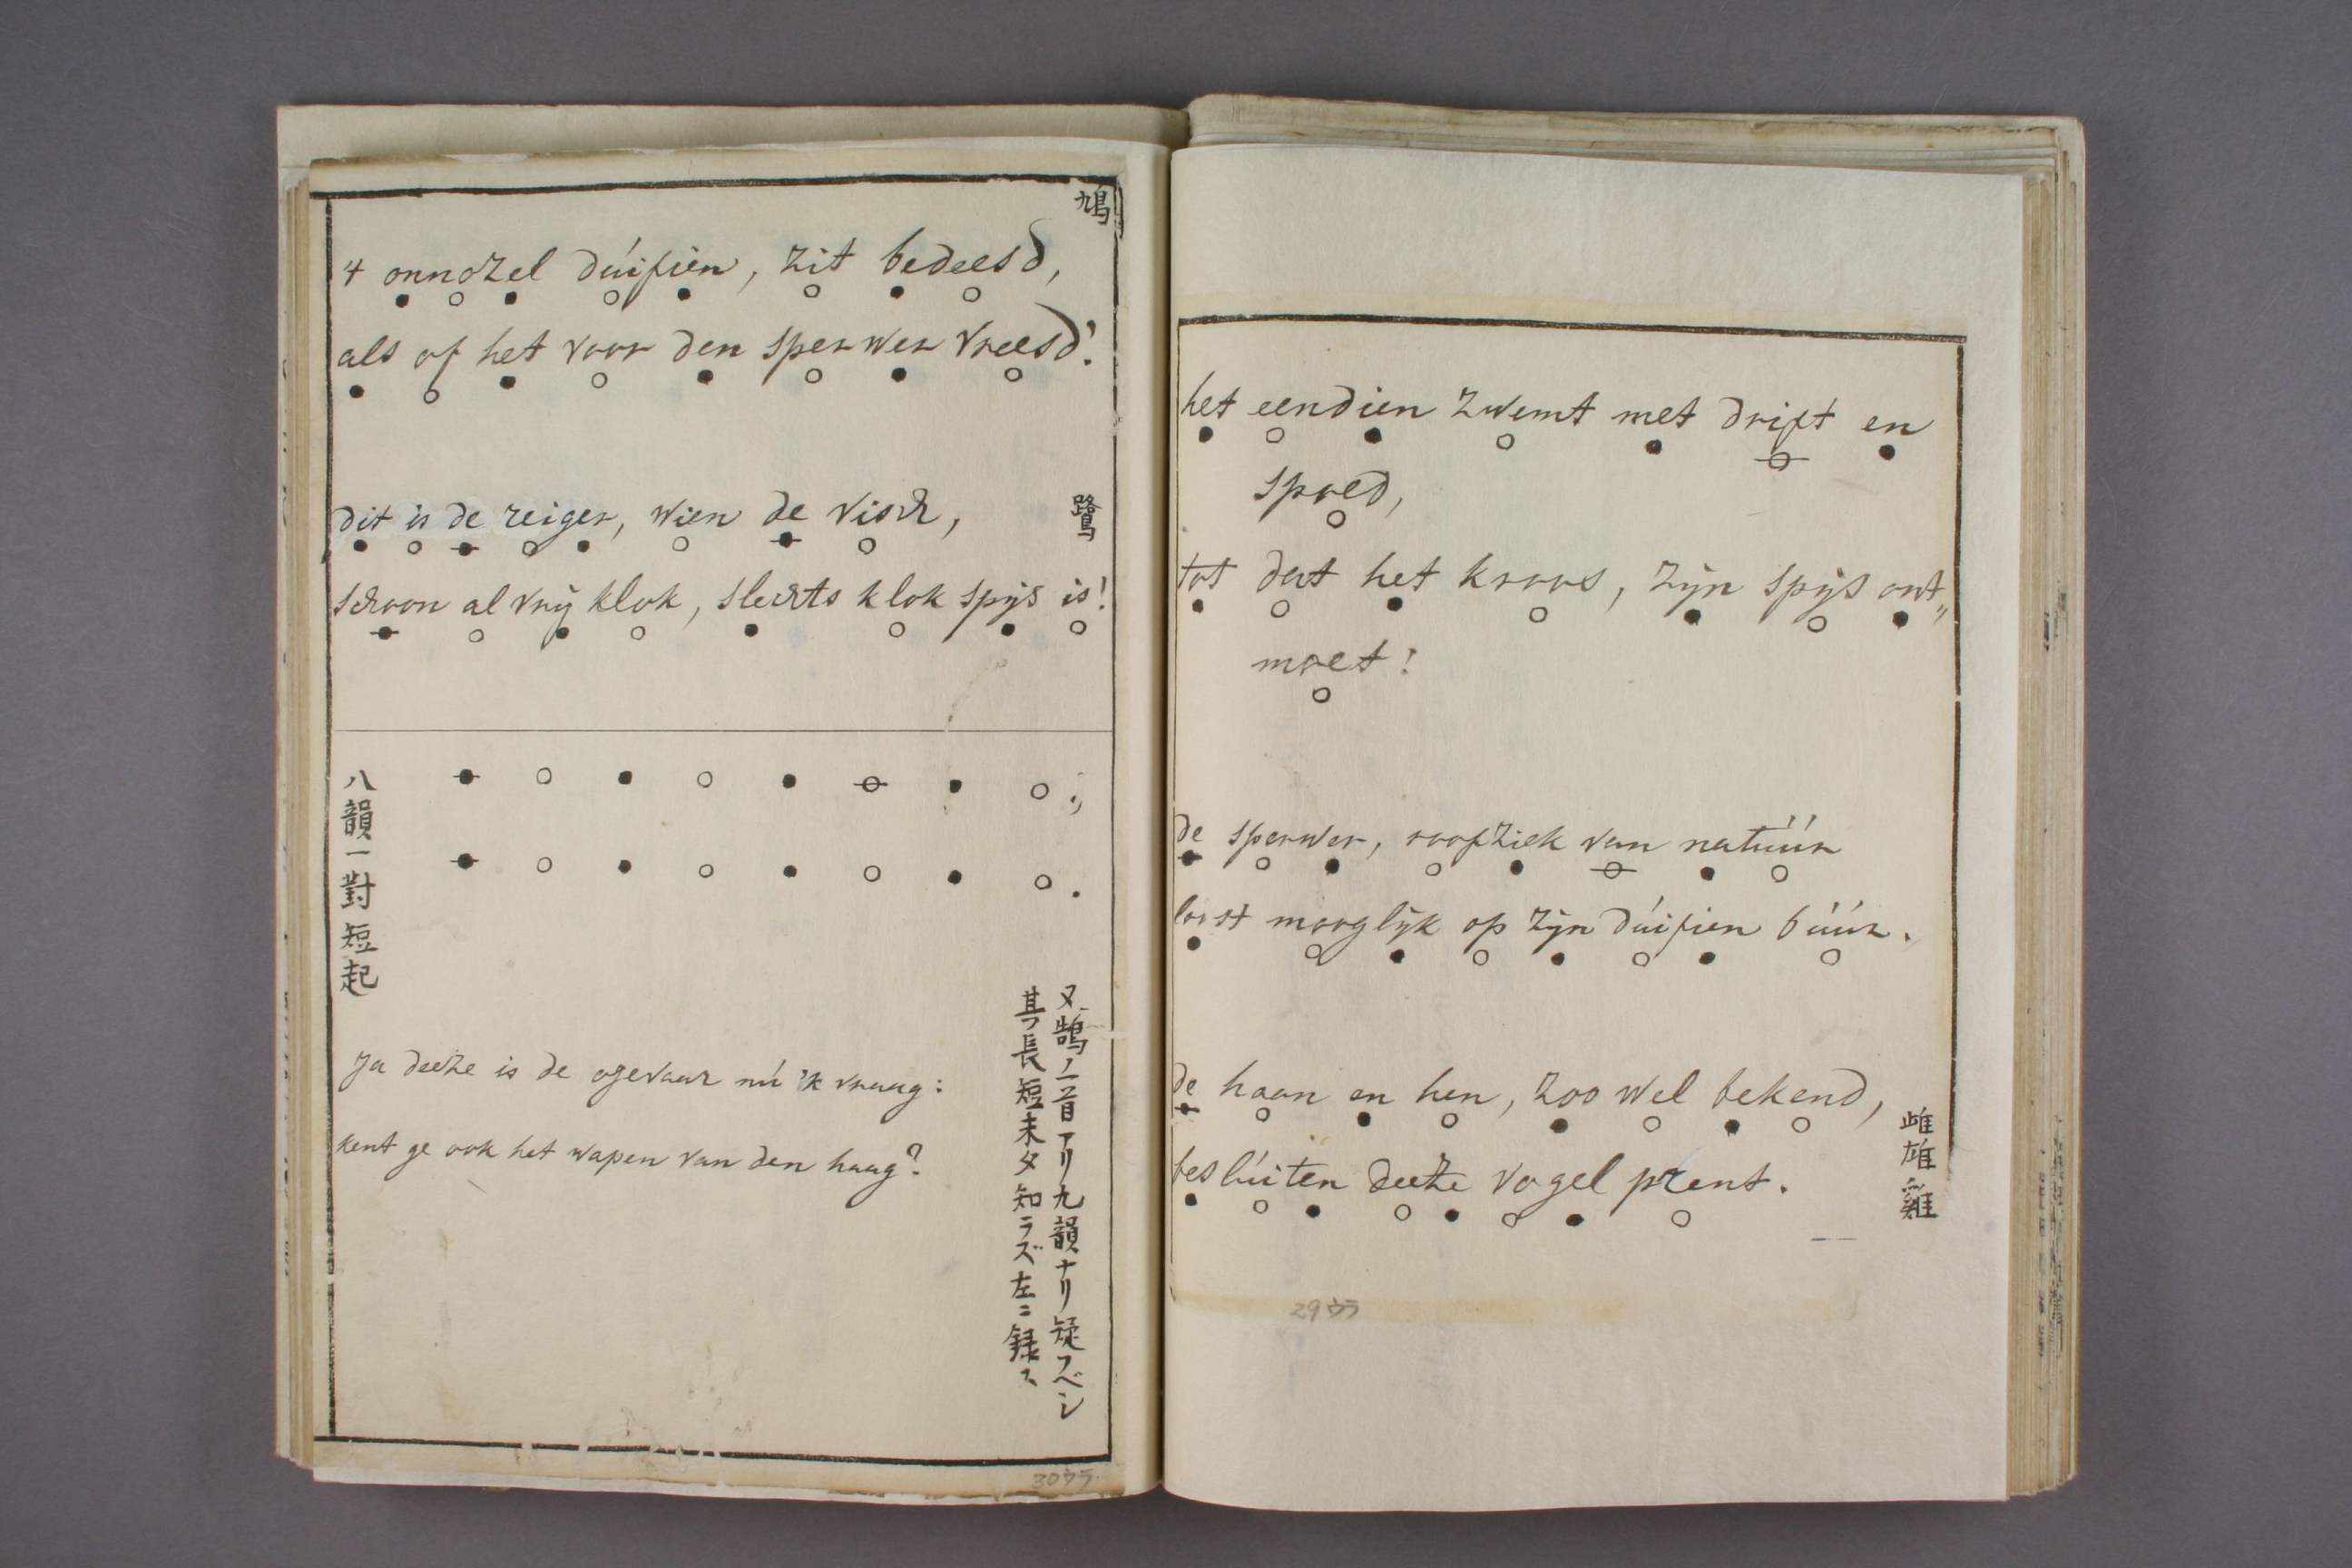 鳩
't onnozel dúifien, zit bedeesd,
als of het voor den sperwer vreesd!
dit is de reiger, wien de visch,
鷺
schoon al vrij klok, slechts klok spijs is!
八韻一對短起
又鵠ノ一首アリ九韻ナリ疑フベシ
其ノ長短未タ知ラズ左ニ録ス
Ja deeze is de ogevaar nú 'k vraag:
kent ge ook het wapen van den haag?
30ウラ
het eendien zwemt met drift en
spoed,
tot dat het kroos, zijn spijs ont„
moet!
de sperwer, roofziek van natúúr
loost mooglijk op zijn dúifien búúr.
de haan en hen, zoo wel bekend,
beslúiten deeze vogel prent.
雌雄雞
29ウラ